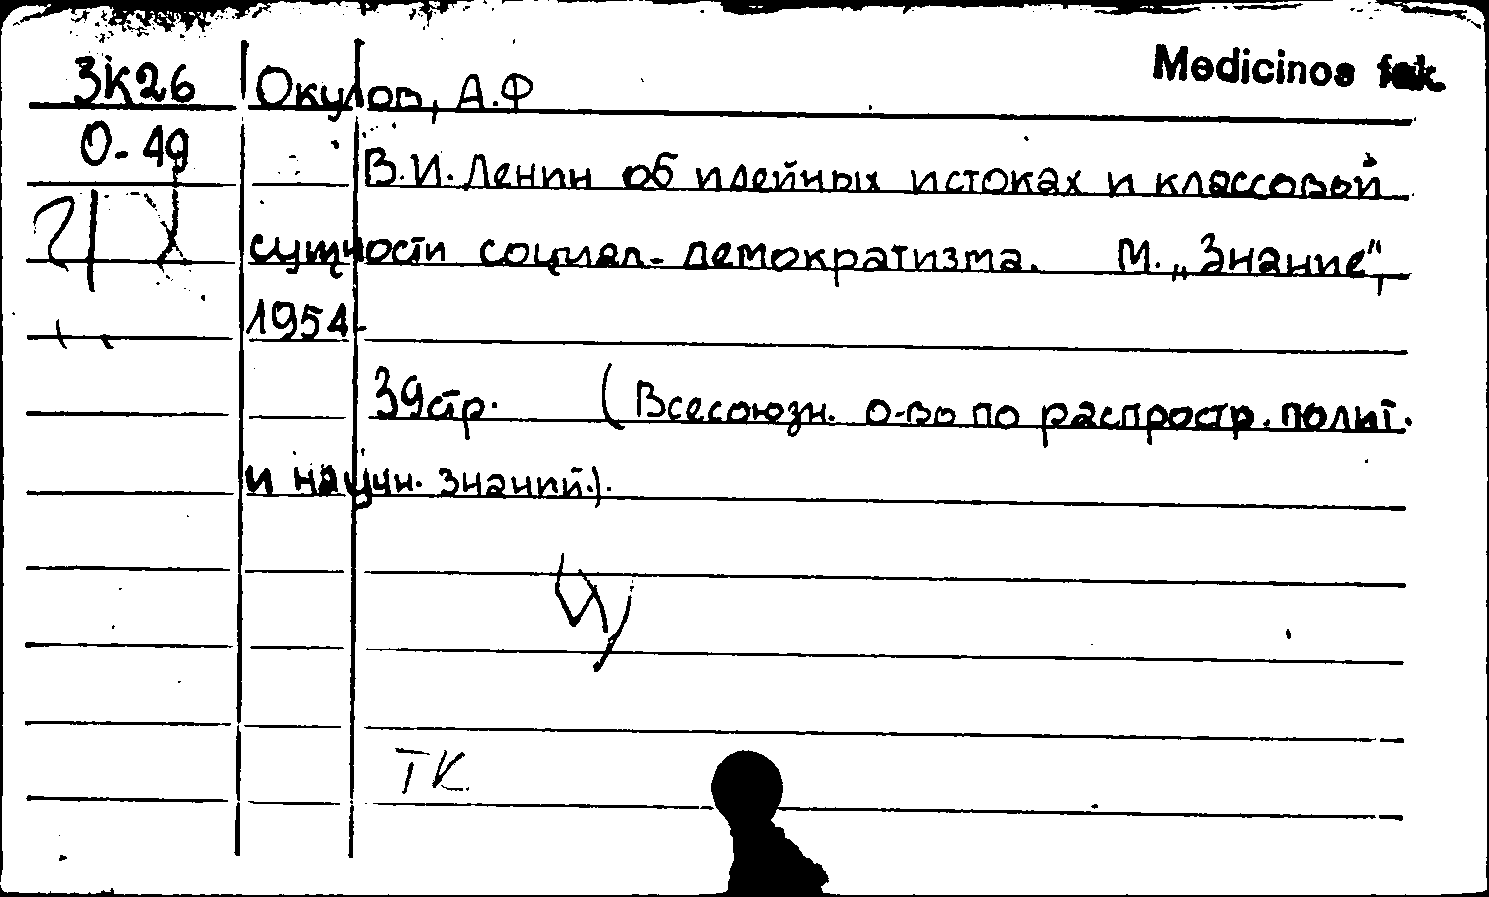 Medicinos fak.
3К26 Окулов, А.Ф
О-49
В.И. Ленин об идейных истоках и классовой
сущности социал-демократизма. М. „Знание",
1954.
39стр. (Всесоюзн. о-во по распростр. полит.
и научн. знаний.).
ТК